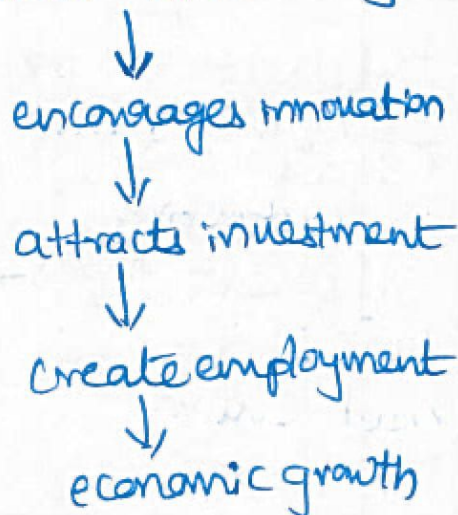 ↓
encourages innovation
↓
attracts investment
↓
create employment
↓
economic growth